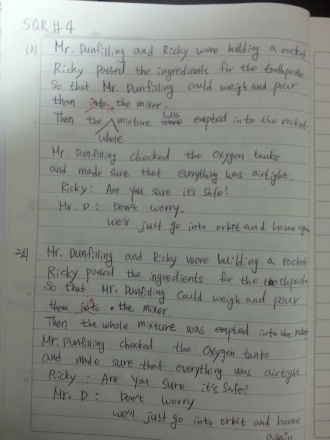 SQR #4
Mr. Dunfilling and Ricky were building a rocket
Ricky passed the ingredients for the toothpaste
So that Mr. Dunfilling could weigh and pour
them into in the mixer.
Then the mixture was empted into the rocket
whole
Mr. Dunfilling checked the Oxygen tanks
and made sure that everything was airtight.
Ricky : Are you sure it's safe?
Mr. D : Don't worry.
we'll just go into orbit and home again
Mr. Dunfilling and Ricky were building a rocket
Ricky passed the ingredients for the toothpaste
So that Mr. Dunfilling could weigh and pour
them into the mixer.
Then the whole mixture was empted into the rocket
Mr. Dunfilling checked the Oxygen tanks
and made sure that everything was airtight
Ricky : Are you sure it's safe?
Mr. D : Don't worry
we'll just go into orbit and home
again